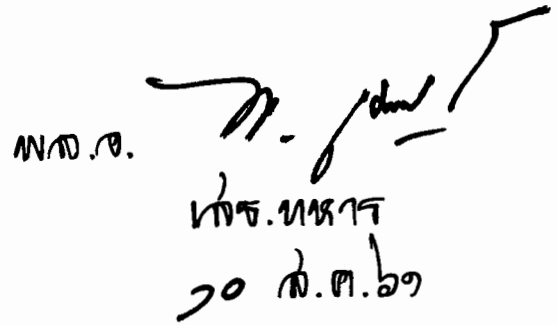 พล.อ.
เสธ.ทหาร
๑๐ ส.ค.๖๑